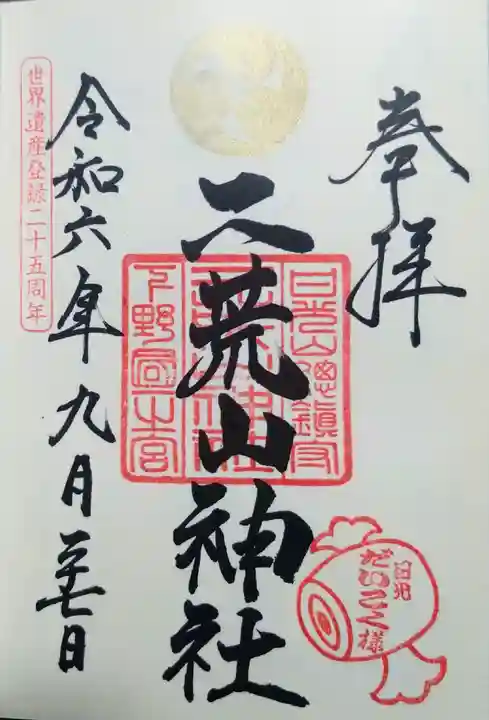 奉拝
二荒山神社
令和六年九月二十七日
世界遺産登録二十五周年
日光山總鎮守
二荒山神社
下野國一之宮
日光
だいこく様